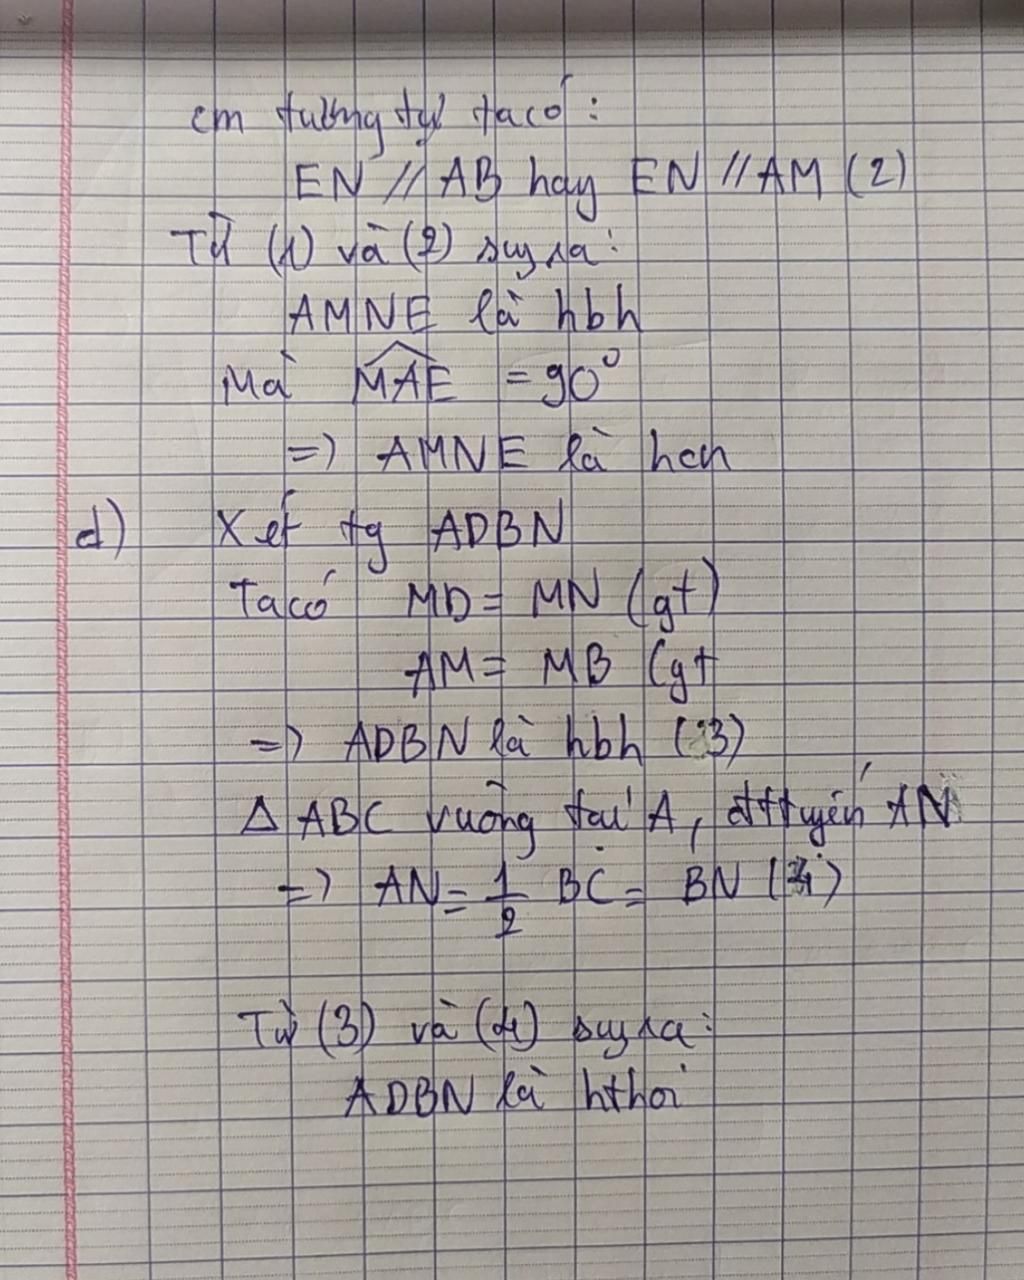 cm tương tự ta có:
EN // AB hay EN // AM (2)
Từ (1) và (2) suy ra:
AMNE là hbh
Mà MAE = 90°
=> AMNE là hcn
d) Xét tg ADBN
Ta có MD = MN (gt)
AM = MB (gt
=> ADBN là hbh (3)
Δ ABC vuông tại A, đttuyến AN
=> AN = 1/2 BC = BN (4)
Từ (3) và (4) suy ra:
ADBN là hthoi